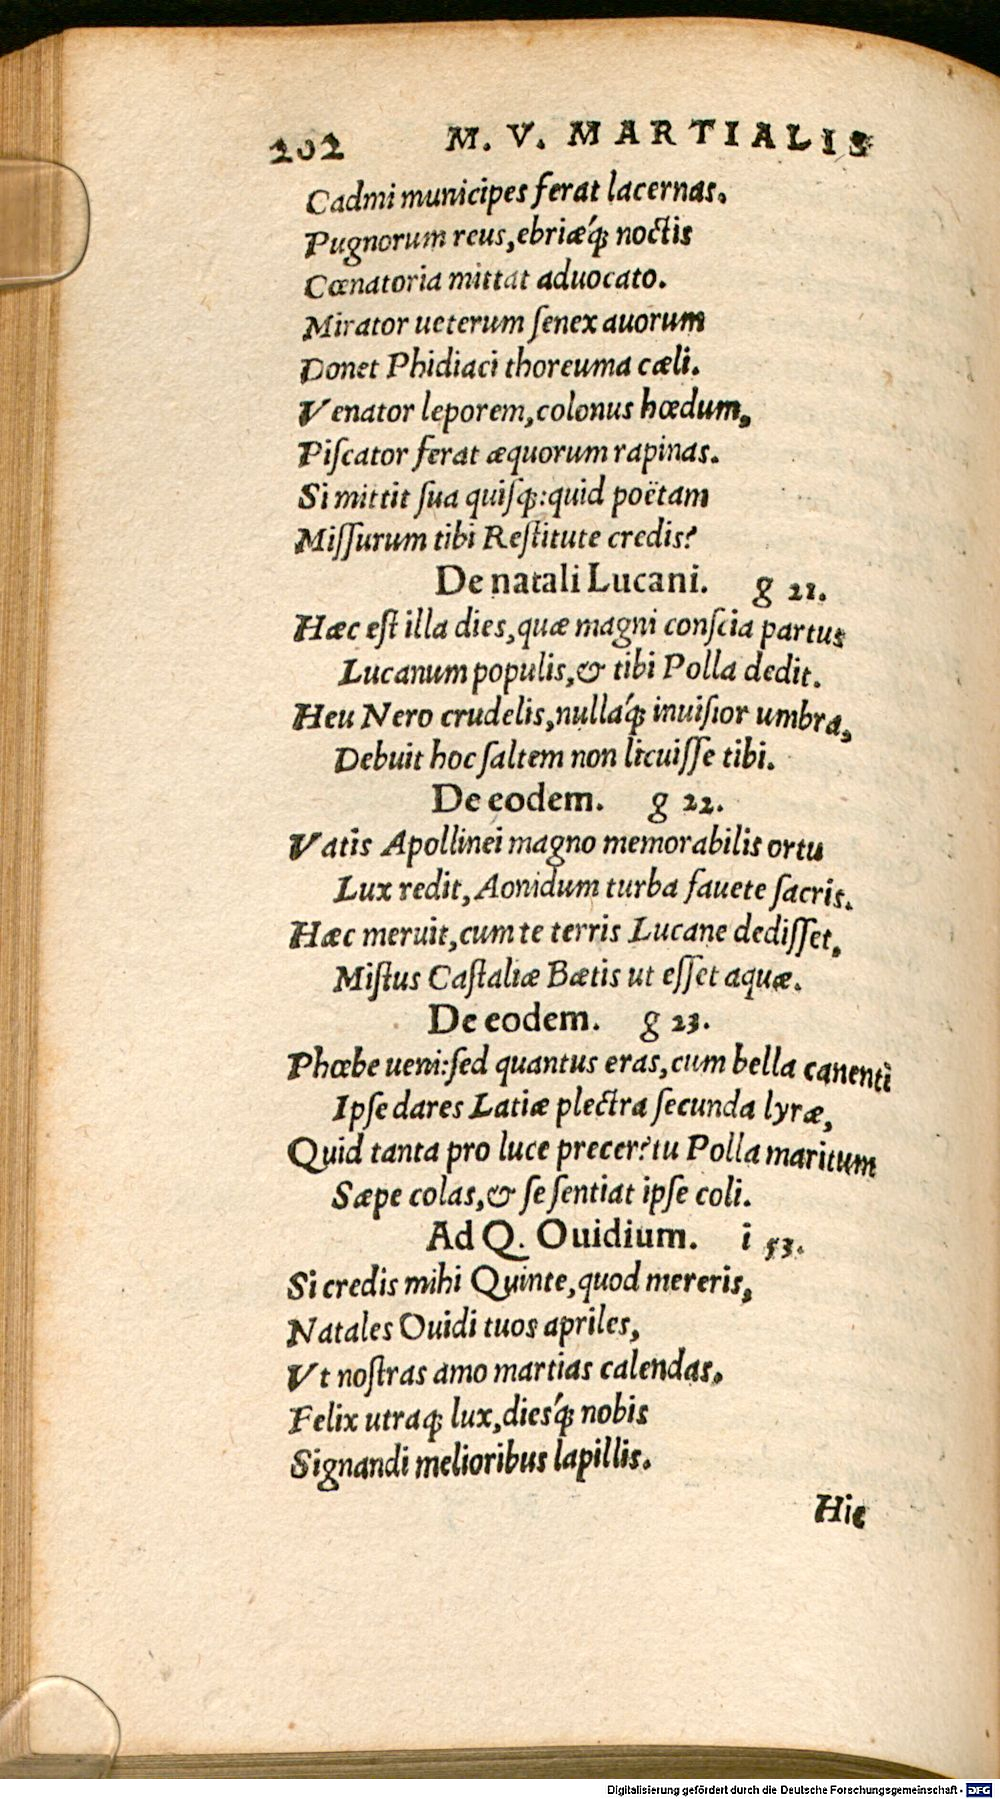 202 M. V. MARTIALIS
Cadmi municipes ferat lacernas.
Pugnorum reus, ebriǽq; noctis
Cœnatoria mittat aduocato.
Mirator ueterum ſenex auorum
Donet Phidiaci thoreuma cæli.
Venator leporem, colonus hœdum,
Piſcator ferat æquorum rapinas.
Si mittit ſua quiſq;: quid poëtam
Miſſurum tibi Reſtitute credis?
De natali Lucani. g 21.
Hæc eſt illa dies, quæ magni conſcia partus
Lucanum populis, & tibi Polla dedit.
Heu Nero crudelis, nullá́q; inuiſior umbra,
Debuit hoc ſaltem non licuiſſe tibi.
De eodem. g 22.
Vatis Apollinei magno memorabilis ortu
Lux redit, Aonidum turba fauete ſacris.
Hæc meruit, cum te terris Lucane dediſſet,
Miſtus Caſtaliæ Bætis ut eſſet aquæ.
De eodem. g 23.
Phœbe ueni: ſed quantus eras, cum bella canenti
Ipſe dares Latiæ plectra ſecunda lyræ,
Quid tanta pro luce precer? tu Polla maritum
Sæpe colas, & ſe ſentiat ipſe coli.
Ad Q. Ouidium. i 53.
Si credis mihi Quinte, quod mereris,
Natales Ouidi tuos apriles,
Vt noſtras amo martias calendas.
Felix utraq; lux, dieś́q; nobis
Signandi melioribus lapillis.
Hic
Digitalisierung gefördert durch die Deutsche Forschungsgemeinschaft - DFG